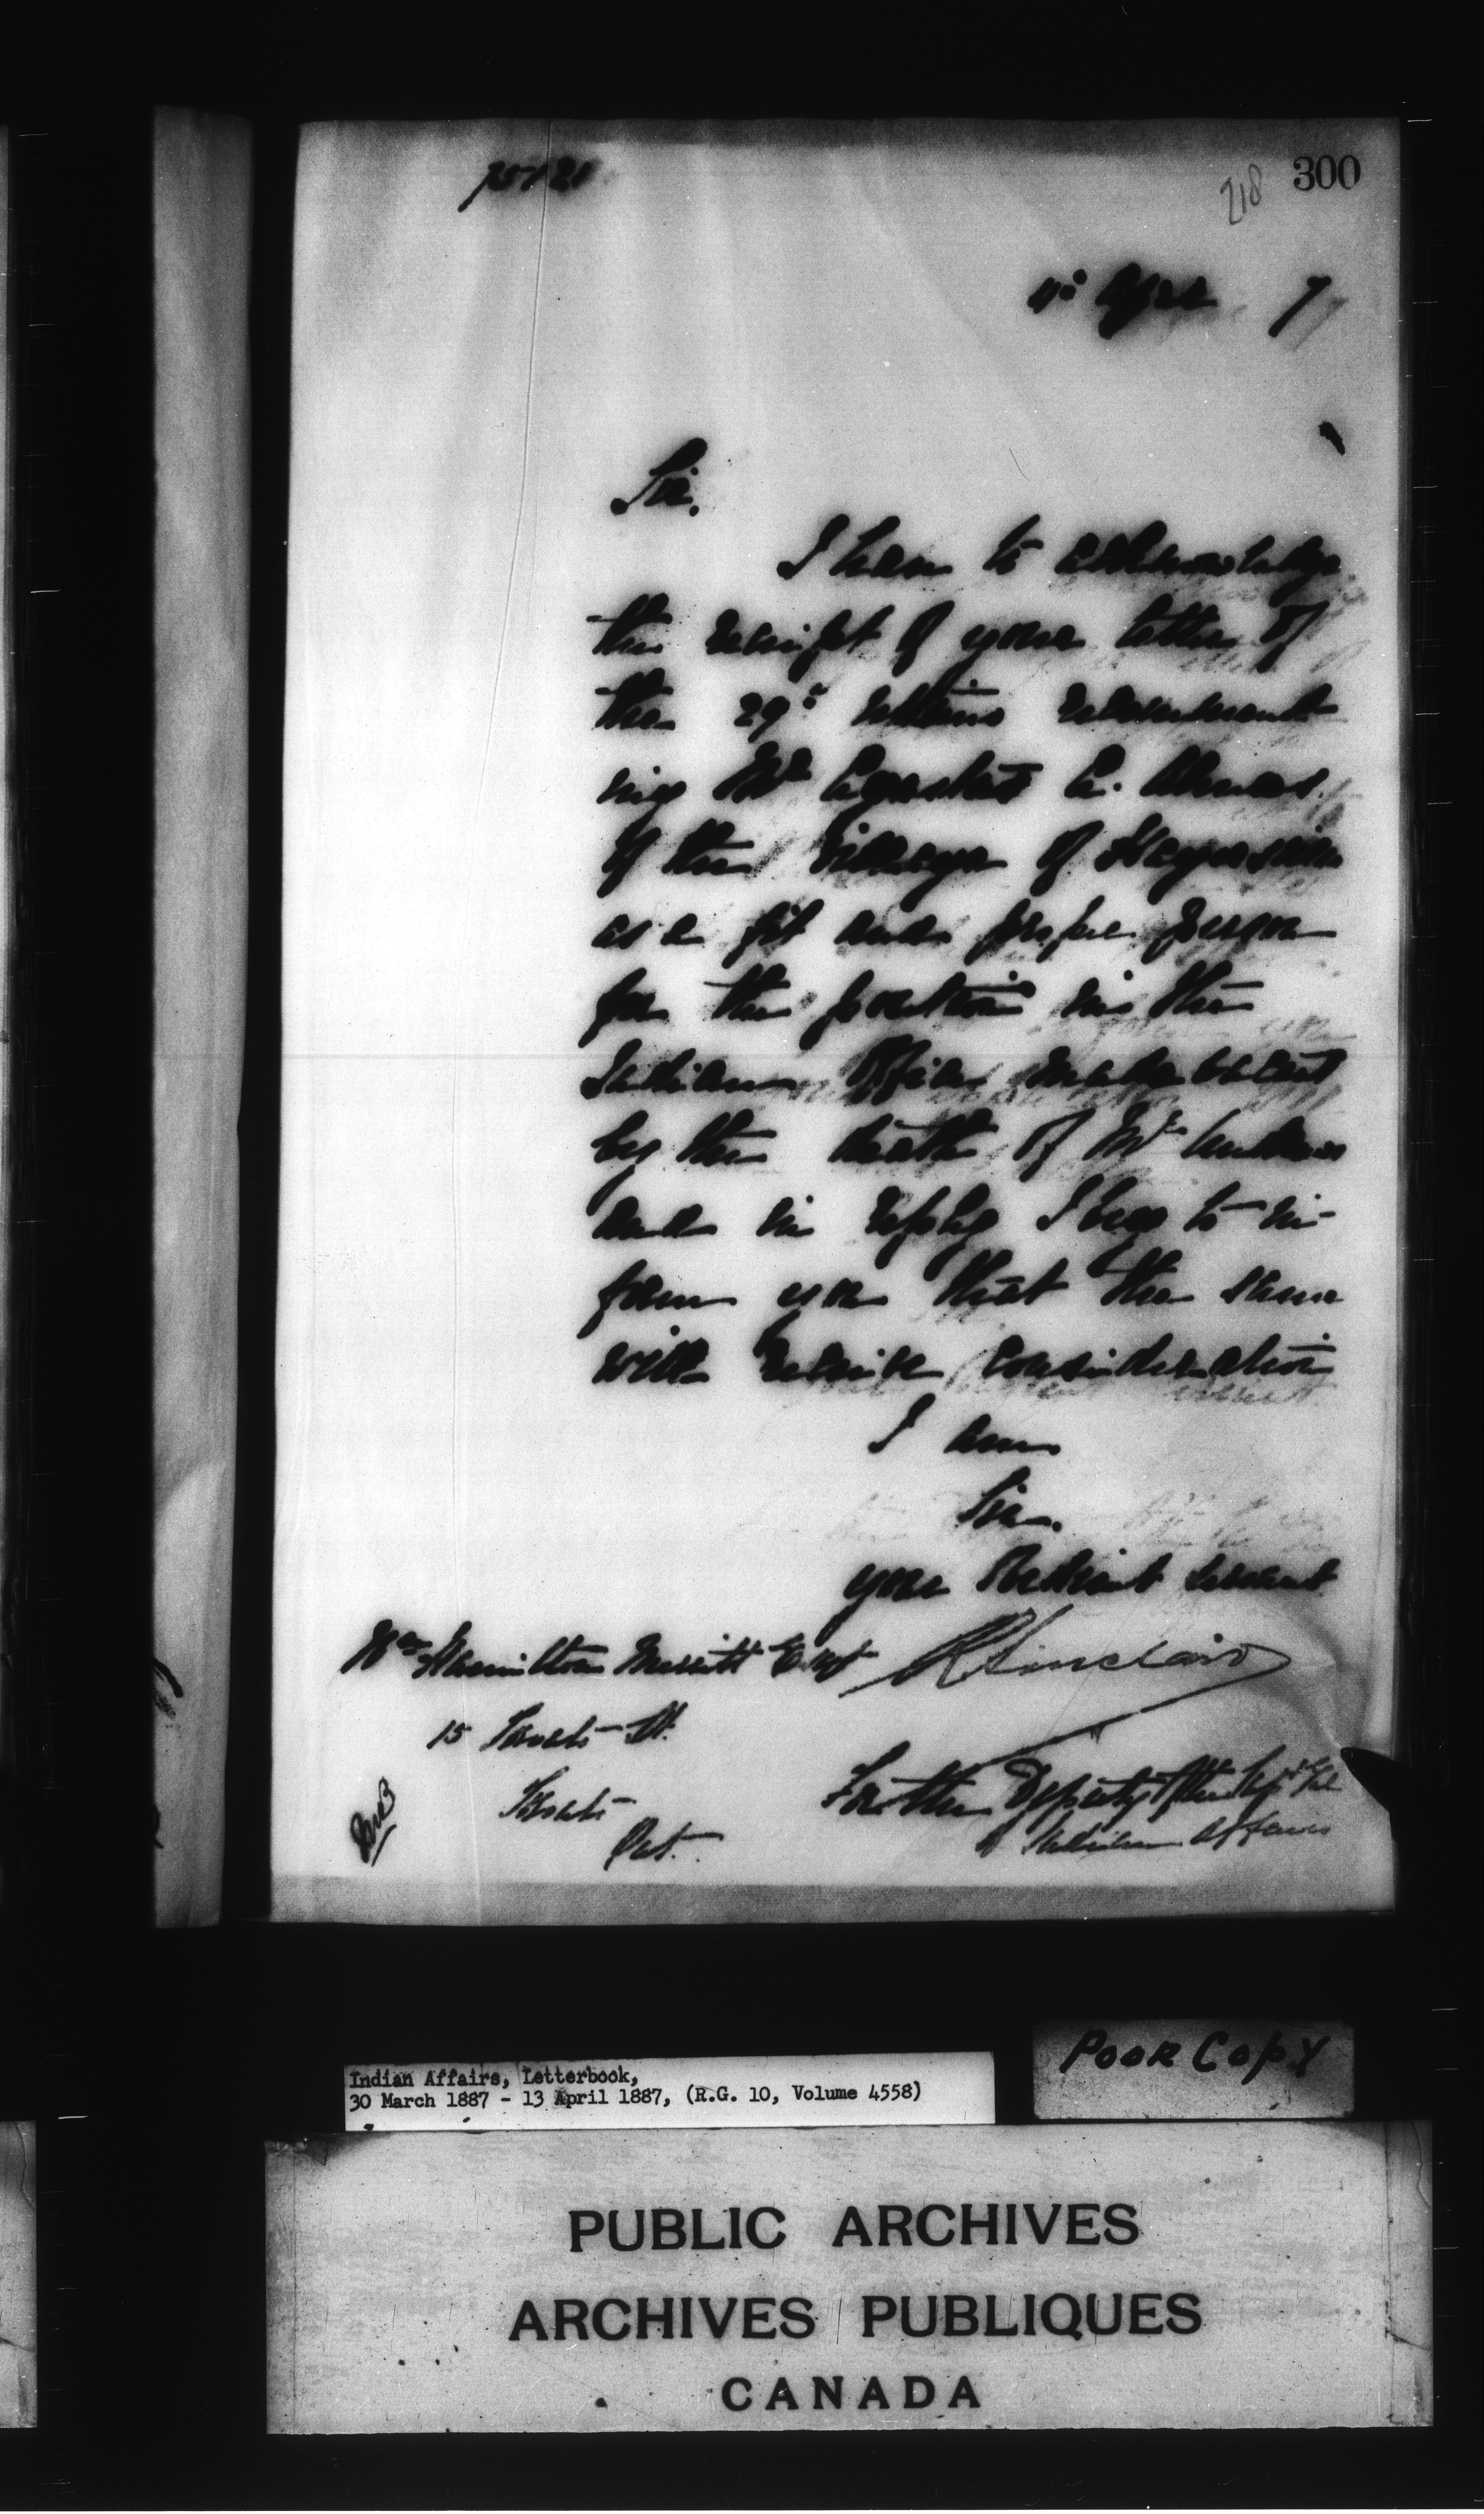 75121
218 300
4th April 7
Sir,
I have to acknowledge
the receipt of your letter of
the 29th ultimo recommend
ing Mr A.
of the Village of Hagersville
as a fit and proper person
for the position in the
Indian Office made vacant
by the death of Mr Andrews
and in reply I beg to in-
form you that the same
will receive consideration
I am
Sir.
your obedient servant
Wm Hamilton Merritt Esqr R Sinclair
15 Toronto St.
Toronto
Ont.
For the Deputy of the Supt Genl
of Indian Affairs
POOR COPY
Indian Affairs, Letterbook,
30 March 1887 - 13 April 1887, (R.G. 10, Volume 4558)
PUBLIC ARCHIVES
ARCHIVES PUBLIQUES
CANADA